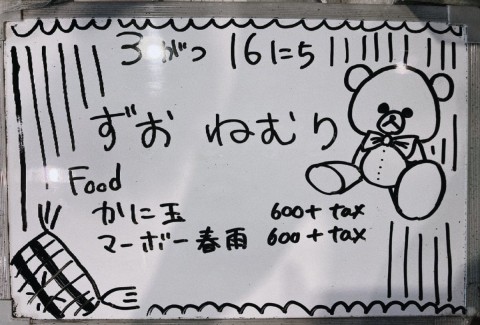 3がつ 16にち
ずお ねむり
Food
かに玉 600+ tax
マーボー春雨 600+ tax